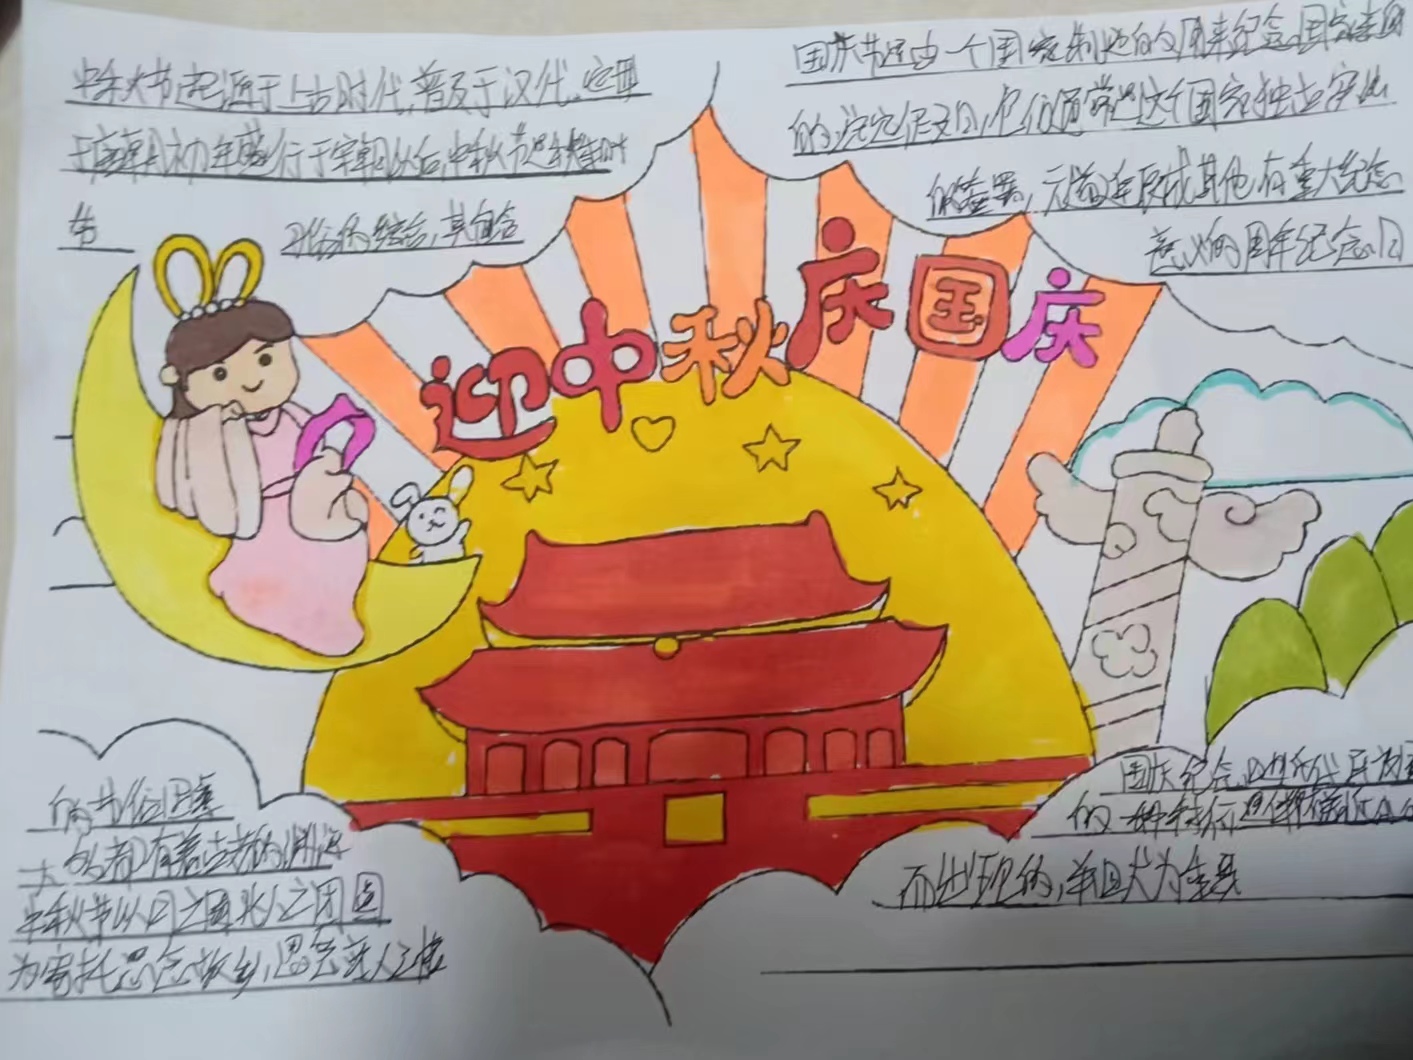 中秋节起源于上古时代,普及于汉代,定型
于唐朝初年盛行于宋朝以后,中秋节是秋季时
节
习俗的综合,其包含
国庆节是由一个国家制定的用来纪念国家本身
的法定假日,它们通常是这个国家独立宪法
的签署,元首诞辰或其他有重大纪念
意义的周年纪念日
迎中秋庆国庆
的节俗因素
大都有着古老的渊源
中秋节以月之圆兆人之团圆
为寄托思念故乡,思念亲人之情
国庆纪念日是近代民族
的一种特征是伴
而出现的,并且尤为重要